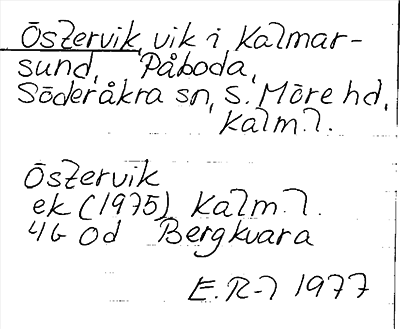 Östervik, vik i Kalmar-
sund, Påboda,
Söderåkra sn, S. Möre hd,
Kalm. l.
Östervik
ek (1975) Kalm. l.
4G 0d Bergkvara
E.R-l 1977